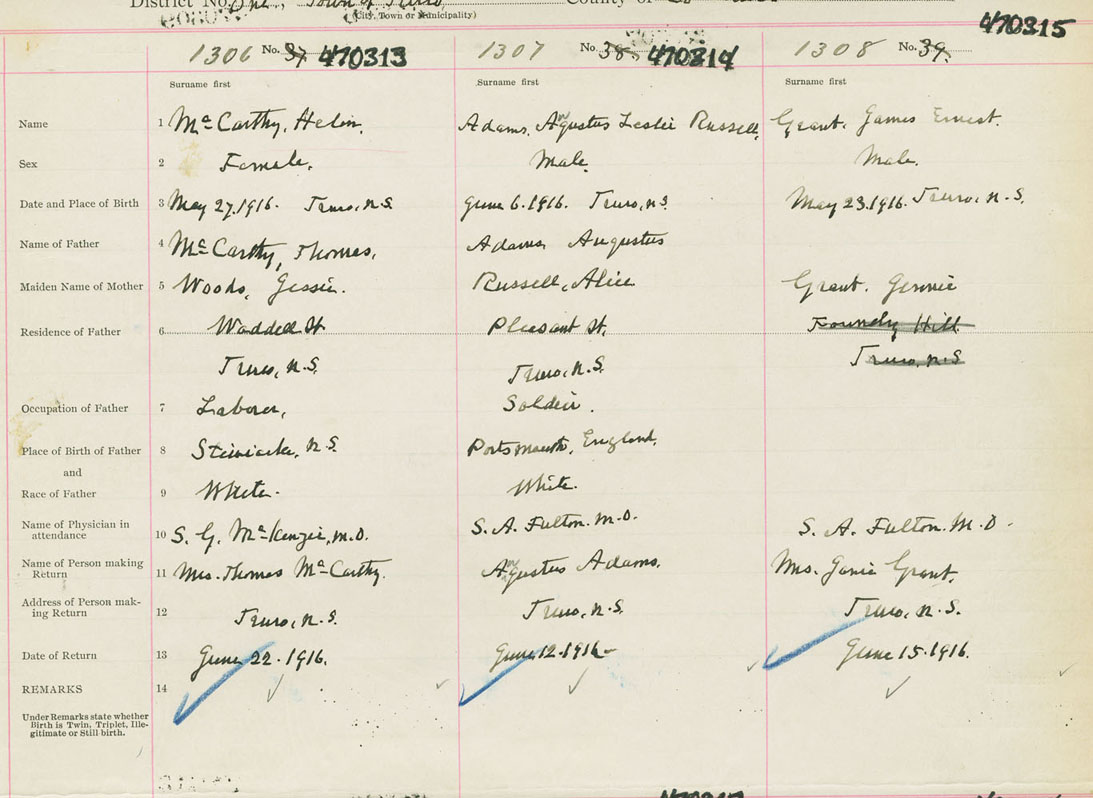 District No. One, Town of Truro County of
(City, Town or Municipality)
470315
1306 No. 37 470313 1307 No. 38 470314 1308 No. 39
Surname first Surname first Surname first
Name 1 McCarthy, Helen. Adams, Augustus Leslie Russell. Grant. James Ernest.
Sex 2 Female. Male. Male.
Date and Place of Birth 3 May 27.1916. Truro, N.S. June 6.1916. Truro, N.S. May 23.1916. Truro, N.S.
Name of Father 4 McCarthy, Thomas. Adams Augustus
Maiden Name of Mother 5 Woods, Jessie. Russell, Alice Grant. Jennie
Residence of Father 6 Waddell St Pleasant St. Foundry Hill
Truro, N.S. Truro, N.S. Truro, N.S
Occupation of Father 7 Laborer, Soldeir.
Place of Birth of Father 8 N.S. Portsmouth, England.
and
Race of Father 9 White. White.
Name of Physician in
attendance 10 S. G. McKenzie, M.D. S. A. Fulton. M.D. S. A. Fulton. M.D.
Name of Person making
Return 11 Mrs. Thomas McCarthy. Augustus Adams. Mrs. Janie Grant.
Address of Person mak-
ing Return 12 Truro, N.S. Truro, N.S. Truro, N.S.
Date of Return 13 June 22. 1916. June 12. 1916 June 15. 1916.
REMARKS 14
Under Remarks state whether
Birth is Twin, Triplet, Ille-
gitimate or Still-birth.